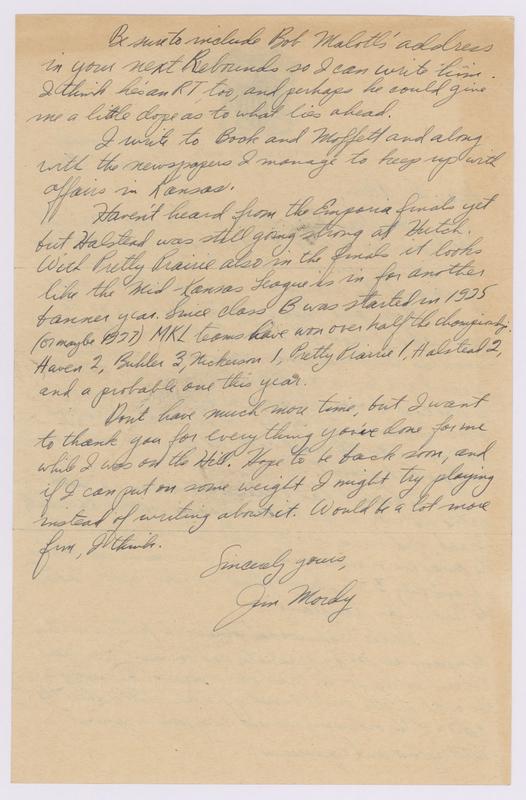 Be sure to include Bob Malott's address
in your next Rebounds so I can write him.
I think he's an RT, too, and perhaps he could give
me a little dope as to what lies ahead.
I write to Book and Moffett and along
with the newspapers I manage to keep up with
affairs in Kansas.
Haven't heard from the Emporia finals yet
but Halstead was still going strong at Hutch.
With Pretty Prairie also in the finals it looks
like the Mid-Kansas League is in for another
banner year. Since class B was started in 1925
(or maybe 1927) MKL teams have won over half the championships.
Haven 2, Buhler 3, Nickerson 1, Pretty Prairie 1, Halstead 2,
and a probable one this year.
Don't have much more time, but I want
to thank you for everything you've done for me
while I was on the Hill. Hope to be back soon, and
if I can put on some weight I might try playing
instead of writing about it. Would be a lot more
fun, I think.
Sincerely yours,
Jim Mordy